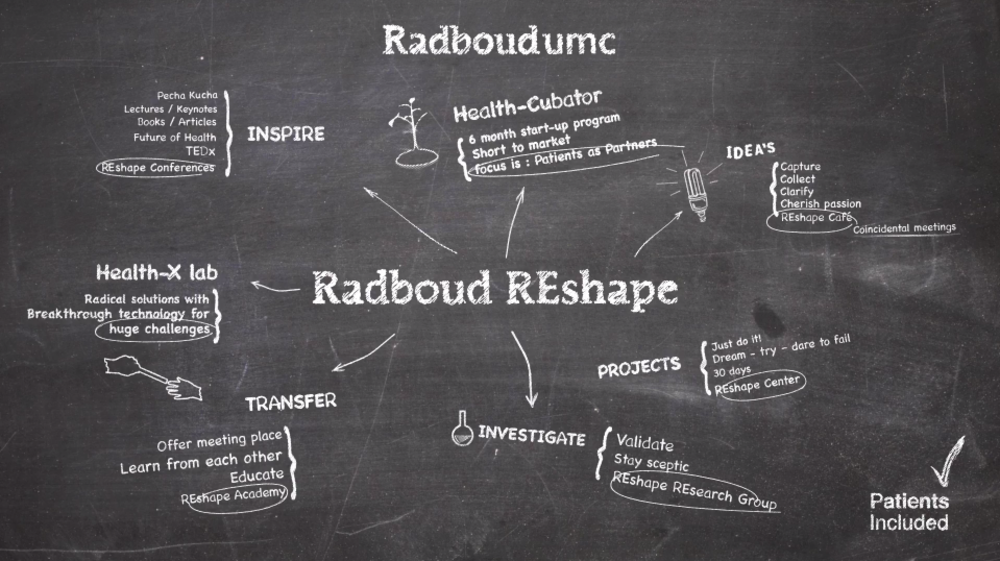 Radboudumc
Pecha Kucha
Lectures / Keynotes
Books / Articles
Future of Health
TEDx
REshape Conferences
INSPIRE
Health-Cubator
6 month start-up program
Short to market
focus is : Patients as Partners
IDEA'S
Capture
Collect
Clarify
Cherish passion
REshape Café
Coincidental meetings
Health-X lab
Radical solutions with
Breakthrough technology for
huge challenges
Radboud REshape
PROJECTS
Just do it!
Dream - try - dare to fail
30 days
REshape Center
TRANSFER
Offer meeting place
Learn from each other
Educate
REshape Academy
INVESTIGATE
Validate
Stay sceptic
REshape REsearch Group
Patients
Included